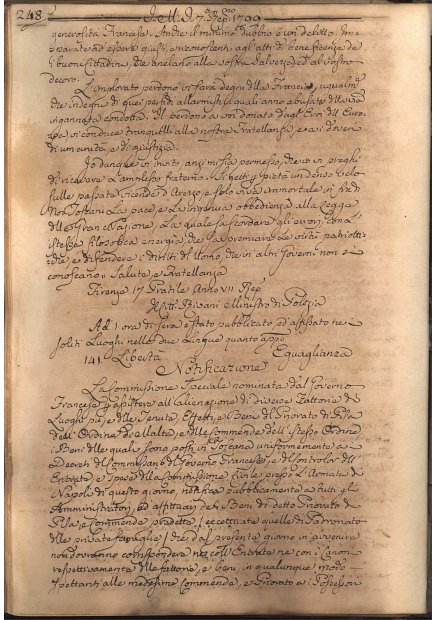 248 J. M. J. 7. 1799
generosità Francesa. Anche il minimo dubbio è un delitto. Im-
parate ad essere giusti, e riconoscenti agl'atti di beneficenza de
i buoni Cittadini, che anelano alla vostra salvezza, ed al vostro
decoro.
L'implorato perdono vi farà degni della Francia, ugualm
che indegni di quei perfidi allarmisti, quali anno abusato della
ingannata condotta. Il perdono a voi donato dagl'Eroi dell'Euro-
pa, vi conduce tranquilli alla nostra fratellanza, era di dovere
di umanità, e di giustizia.
Io dunque vi invito, anzi mi sia permesso, che io vi preghi
di ricevere l'amplesso fraterno. Si getti per pietà un denso velo
sulle passate vicende d'Arezzo, e solo viva immortale in fra di
Noi Toscani la pace, e la ingenua obbedienza alla Legge
della Gran Nazione, la quale sa scordare gli errori, con la
stessa filosofica energia, che sa premiare le virtù patriotti-
che, e difendere i diritti dell'Uomo, che in altri Governi non si
conoscano. Salute, e Fratellanza
Firenze 17 Pratile Anno VII Rep.
Vitt. Ministro di Polizia
Ad 1 ora di sera è stato pubblicato, ed affissato ne
soliti Luoghi nelle due Lingue quanto app
141 Libertà Eguaglianza
Notificazione
La Commissione Speciale nominata dal Governo
Francese per assistere all'alienazione di diverse Fattorie de
Luoghi pii, e delle Tenute, Effetti, e Beni del Priorato di Pisa
dell'Ordine di Malta, e delle Commende dell'istesso Ordine
i Beni delle quali sono posti in Toscana uniformemente a
Decreti del Commissario del Governo Francese, e del Controlor dell'
Entrata, e Spese della Commissione Civile presso l'Armata di
Napoli di questo giorno, notifica pubblicamente a tutti gli
Amministratori, ed affittuari de i Beni di detto Priorato di
Pisa, e Commenda predetta, (eccettuate quelle di Padronato
delle private famiglie) che dal presente giorno in avvenire
non dovranno corrispondere nè coll'Entrate, nè con i Canoni
respettivamente delle fattorie, e beni, in qualunque modo
spettanti alle medesime Commende, e Priorato a i Possessori